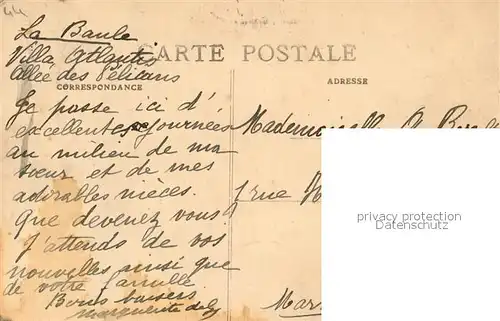 44
La Baule
Villa Atlantis
CARTE POSTALE
Allée des Pélicans
CORRESPONDANCE
ADRESSE
Je passe ici d'
excellentes journées
au milieu de ma
sœur et de mes
adorables nièces.
Que devenez vous?
J'attends de vos
nouvelles ainsi que
de votre famille
Bons baisers
Marguerite
Mademoiselle
rue
privacy protection
Datenschutz